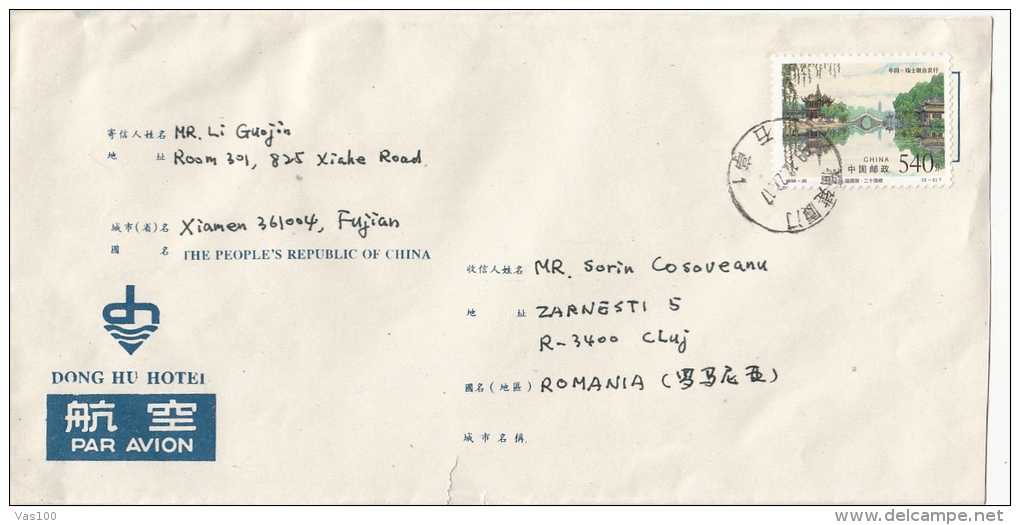 寄信人姓名 MR. Li Guojin
地址 Room 301, 825 Xiahe Road
城市(省)名 Xiamen 361004, Fujian
國名 THE PEOPLE'S REPUBLIC OF CHINA
dh
DONG HU HOTEL
航空
PAR AVION
中国-瑞士联合发行
CHINA
中国邮政 540分
1998-26
福建厦门
收信人姓名 MR. Sorin Cosoveanu
地址 ZARNESTI 5
R-3400 Cluj
國名(地區) ROMANIA (罗马尼亚)
城市名稱
Vas100
delcampe.net